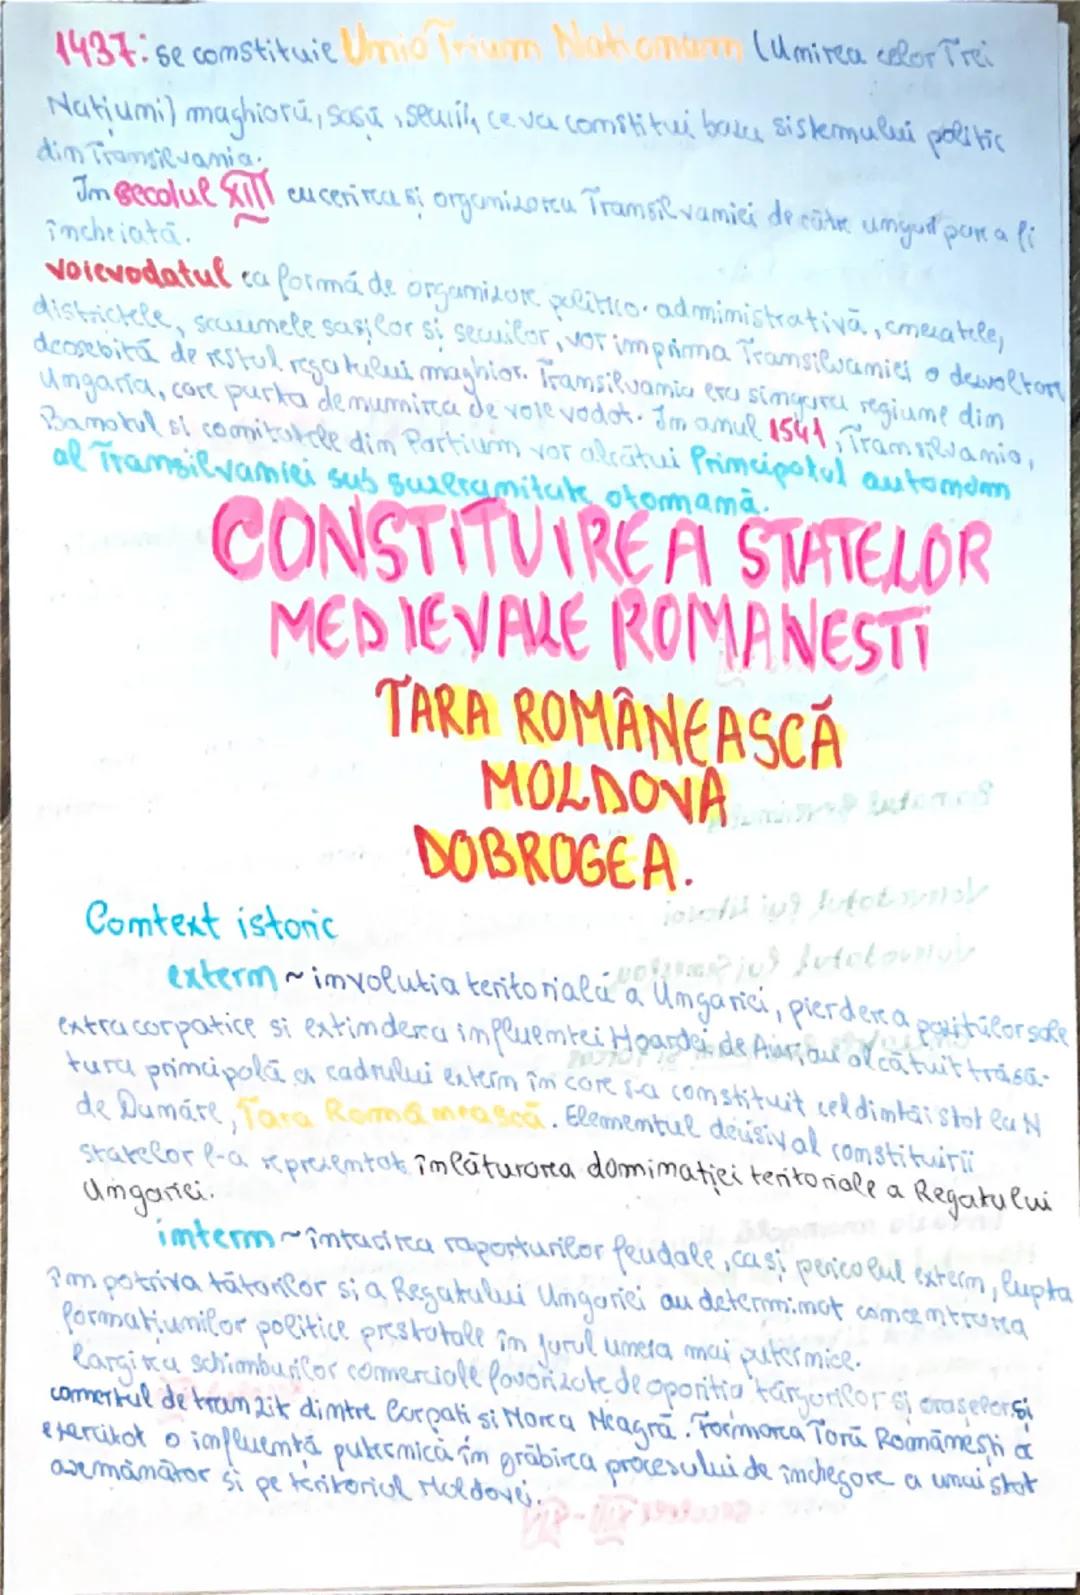 1437: se constituie Unio Trium Nationum (Unirea celor Trei
Natiuni) maghiari, sasii, secuii, ce va constitui baza sistemului politic
din Transilvania.
In secolul XIII cucerirea si organizarea Transilvaniei de către unguri pare a fi
încheiată.
voievodatul ca formă de organizare politico-administrativă, cnezatele,
districtele, scaunele sașilor si secuilor, vor imprima Transilvaniei o dezvoltare
deosebită de restul regatului maghiar. Transilvania era singura regiune din
Ungaria, care purta denumirea de voievodat. In anul 1541, Transilvania,
Banatul si comitatele din Partium vor alcătui Principatul autonom
al Transilvaniei sub suzeranitate otomană.
CONSTITUIREA STATELOR
MEDIEVALE ROMANESTI
TARA ROMÂNEASCĂ
MOLDOVA
DOBROGEA.
Context istoric
extern ~ involutia teritorială a Ungariei, pierderea pozitiilor sale
extracarpatice si extinderea influentei Hoardei de Aur, au alcătuit trăsă-
tura principală a cadrului extern în care s-a constituit cel dintâi stat la N
de Dunăre, Tara Românească. Elementul decisiv al constituirii
statelor l-a reprezentat înlăturarea dominației teritoriale a Regatului
Ungariei.
intern ~ întarirea raporturilor feudale, ca și pericolul extern, lupta
împotriva tătarilor si a Regatului Ungariei au determinat concentrarea
formațiunilor politice prestatale în jurul uneia mai puternice.
largirea schimburilor comerciale favorizate de aparitia târgurilor și orașelor și
comertul de tranzit dintre Carpati si Marea Neagră. Formarea Tării Românești a
exercitat o influență puternică în grăbirea procesului de închegare a unui stat
asemănător și pe teritoriul Moldovei.